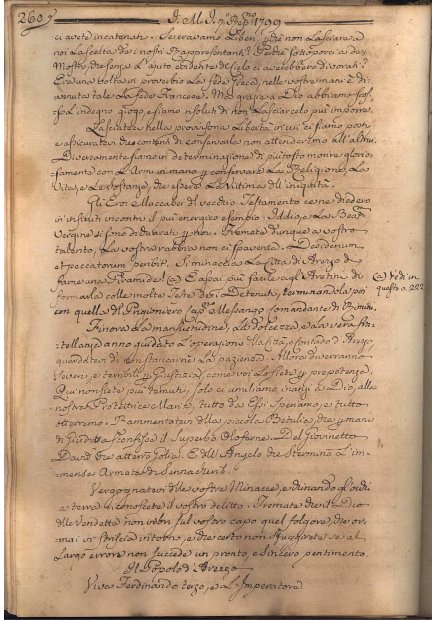 260
I. M. I. 1799
ci avete incatenati. Se eravamo Liberi, perché non Lasciare a
noi La scelta de i nostri Rappresentanti? Perché sottoporci a dei
Mostri, che senza L'aiuto evidente del cielo ci averebbero divorati?
Era una volta in proverbio La fede Greca, nelle vostre mani è di-
venuta tale La fede Francese. Ma grazie a Dio abbiamo scos-
so L'indegno giogo, e siamo risoluti di non Lasciarcelo più imporre.
Lasciateci nella provvisoria Libertà in cui ci siamo posti,
e assicuratevi che contenti di conservarla non attenderemo all'altrui.
Diversamente siamo in determinazione di più tosto morire glorio-
samente con L'Armi in mano per conservare La Religione, La
Vita, e Le sostanze, che essere La vittima dell'iniquità.
Gli Eroi Maccabei del vecchio Testamento ce ne diedero
in simili incontri il più energico esempio. Iddio, e La Beata
Vergine si sono dichiarati per noi. Fremete dunque a vostro
talento, La vostra rabbia non ci spaventa. Desiderium
peccatorum peribit. Si minaccia La Città di Arezzo di
farne una Piramide! (a) E assai più facile agl'Aretini di
formarla colle molte Teste dei Detenuti, terminandola poi
con quella del Prigioniero Messango comandante di
(a) Vedi in
questo a 222
Finora La mansuetudine, La dolcezza, e La vera fra-
tellanza anno guidato L'operazioni della Città, e Contado d'Arezzo,
guardatevi di non stancarne La pazienza. Allora diverranno
feroci, e terribili per Giustizia, come voi Lo siete per prepotenza.
Qui non siete più temuti, solo ci umiliamo inanzi a Dio, alla
nostra Protettrice Maria, tutto da Essi speriamo, e tutto
otterremo. Rammentatevi della piccola Betulia, che per mano
di Giuditta sconfisse il superbo Oloferne. Del Giovinetto
David che atterrò Golia. E dell'Angelo che sterminò L'im-
mensa Armata di Sennacherib.
Vergognatevi delle vostre Minacce, e chinando gl'occhi
a terra riconoscete il vostro delitto. Tremate che il Dio
delle Vendette non vibri sul vostro capo quel folgore, che or-
mai vi striscia intorno, e che certo non sfuggirete se al
Largo errore non succede un pronto, e sincero pentimento.
Il Popolo d'Arezzo
Viva Ferdinando terzo, e L'Imperatore